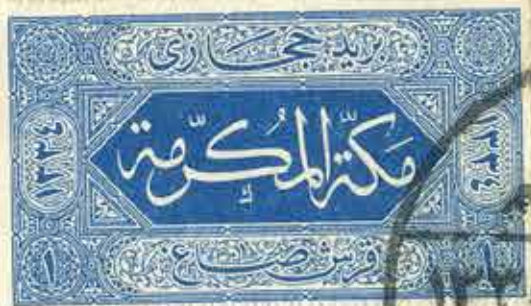 بريد حجازى
١٣٣٤ مكة المكرمة ١٣٣٤
١ قرش صاغ ١